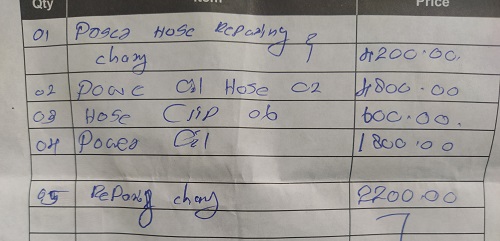 Qty Item Price
01 Power Hose Repairing &
charg 4200.00.
02 Powe Oil Hose 02 4800.00
03 Hose Clip 06 600.00.
04 Power Oil 1800.00
05 Reparing charg 2200.00